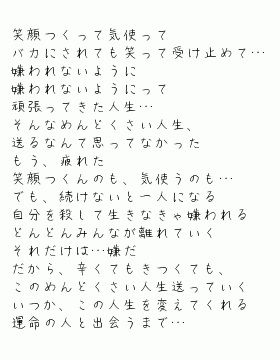 笑顔つくって気使って
バカにされても笑って受け止めて…
嫌われないように
嫌われないようにって
頑張ってきた人生…
そんなめんどくさい人生、
送るなんて思ってなかった
もう、疲れた
笑顔つくんのも、気使うのも…
でも、続けないと一人になる
自分を殺して生きなきゃ嫌われる
どんどんみんなが離れていく
それだけは…嫌だ
だから、辛くてもきつくても、
このめんどくさい人生送っていく
いつか、この人生を変えてくれる
運命の人と出会うまで…